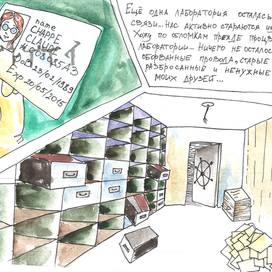 name
CHAPPE
CLAUDE
Dob 23/02/1989
Exp 20/05/2015
ЕЩЁ ОДНА ЛАБОРАТОРИЯ ОСТАЛАСЬ
СВЯЗИ...НАС АКТИВНО СТАРАЮТСЯ
ХОЖУ ПО ОБЛОМКАМ ПРЕЖДЕ
ЛАБОРАТОРИИ... НИЧЕГО НЕ
ОБОРВАННЫЕ ПРОВОДА, СТАРЫЕ
РАЗБРОСАННЫЕ И НЕНУЖНЫЕ
МОИХ ДРУЗЕЙ...